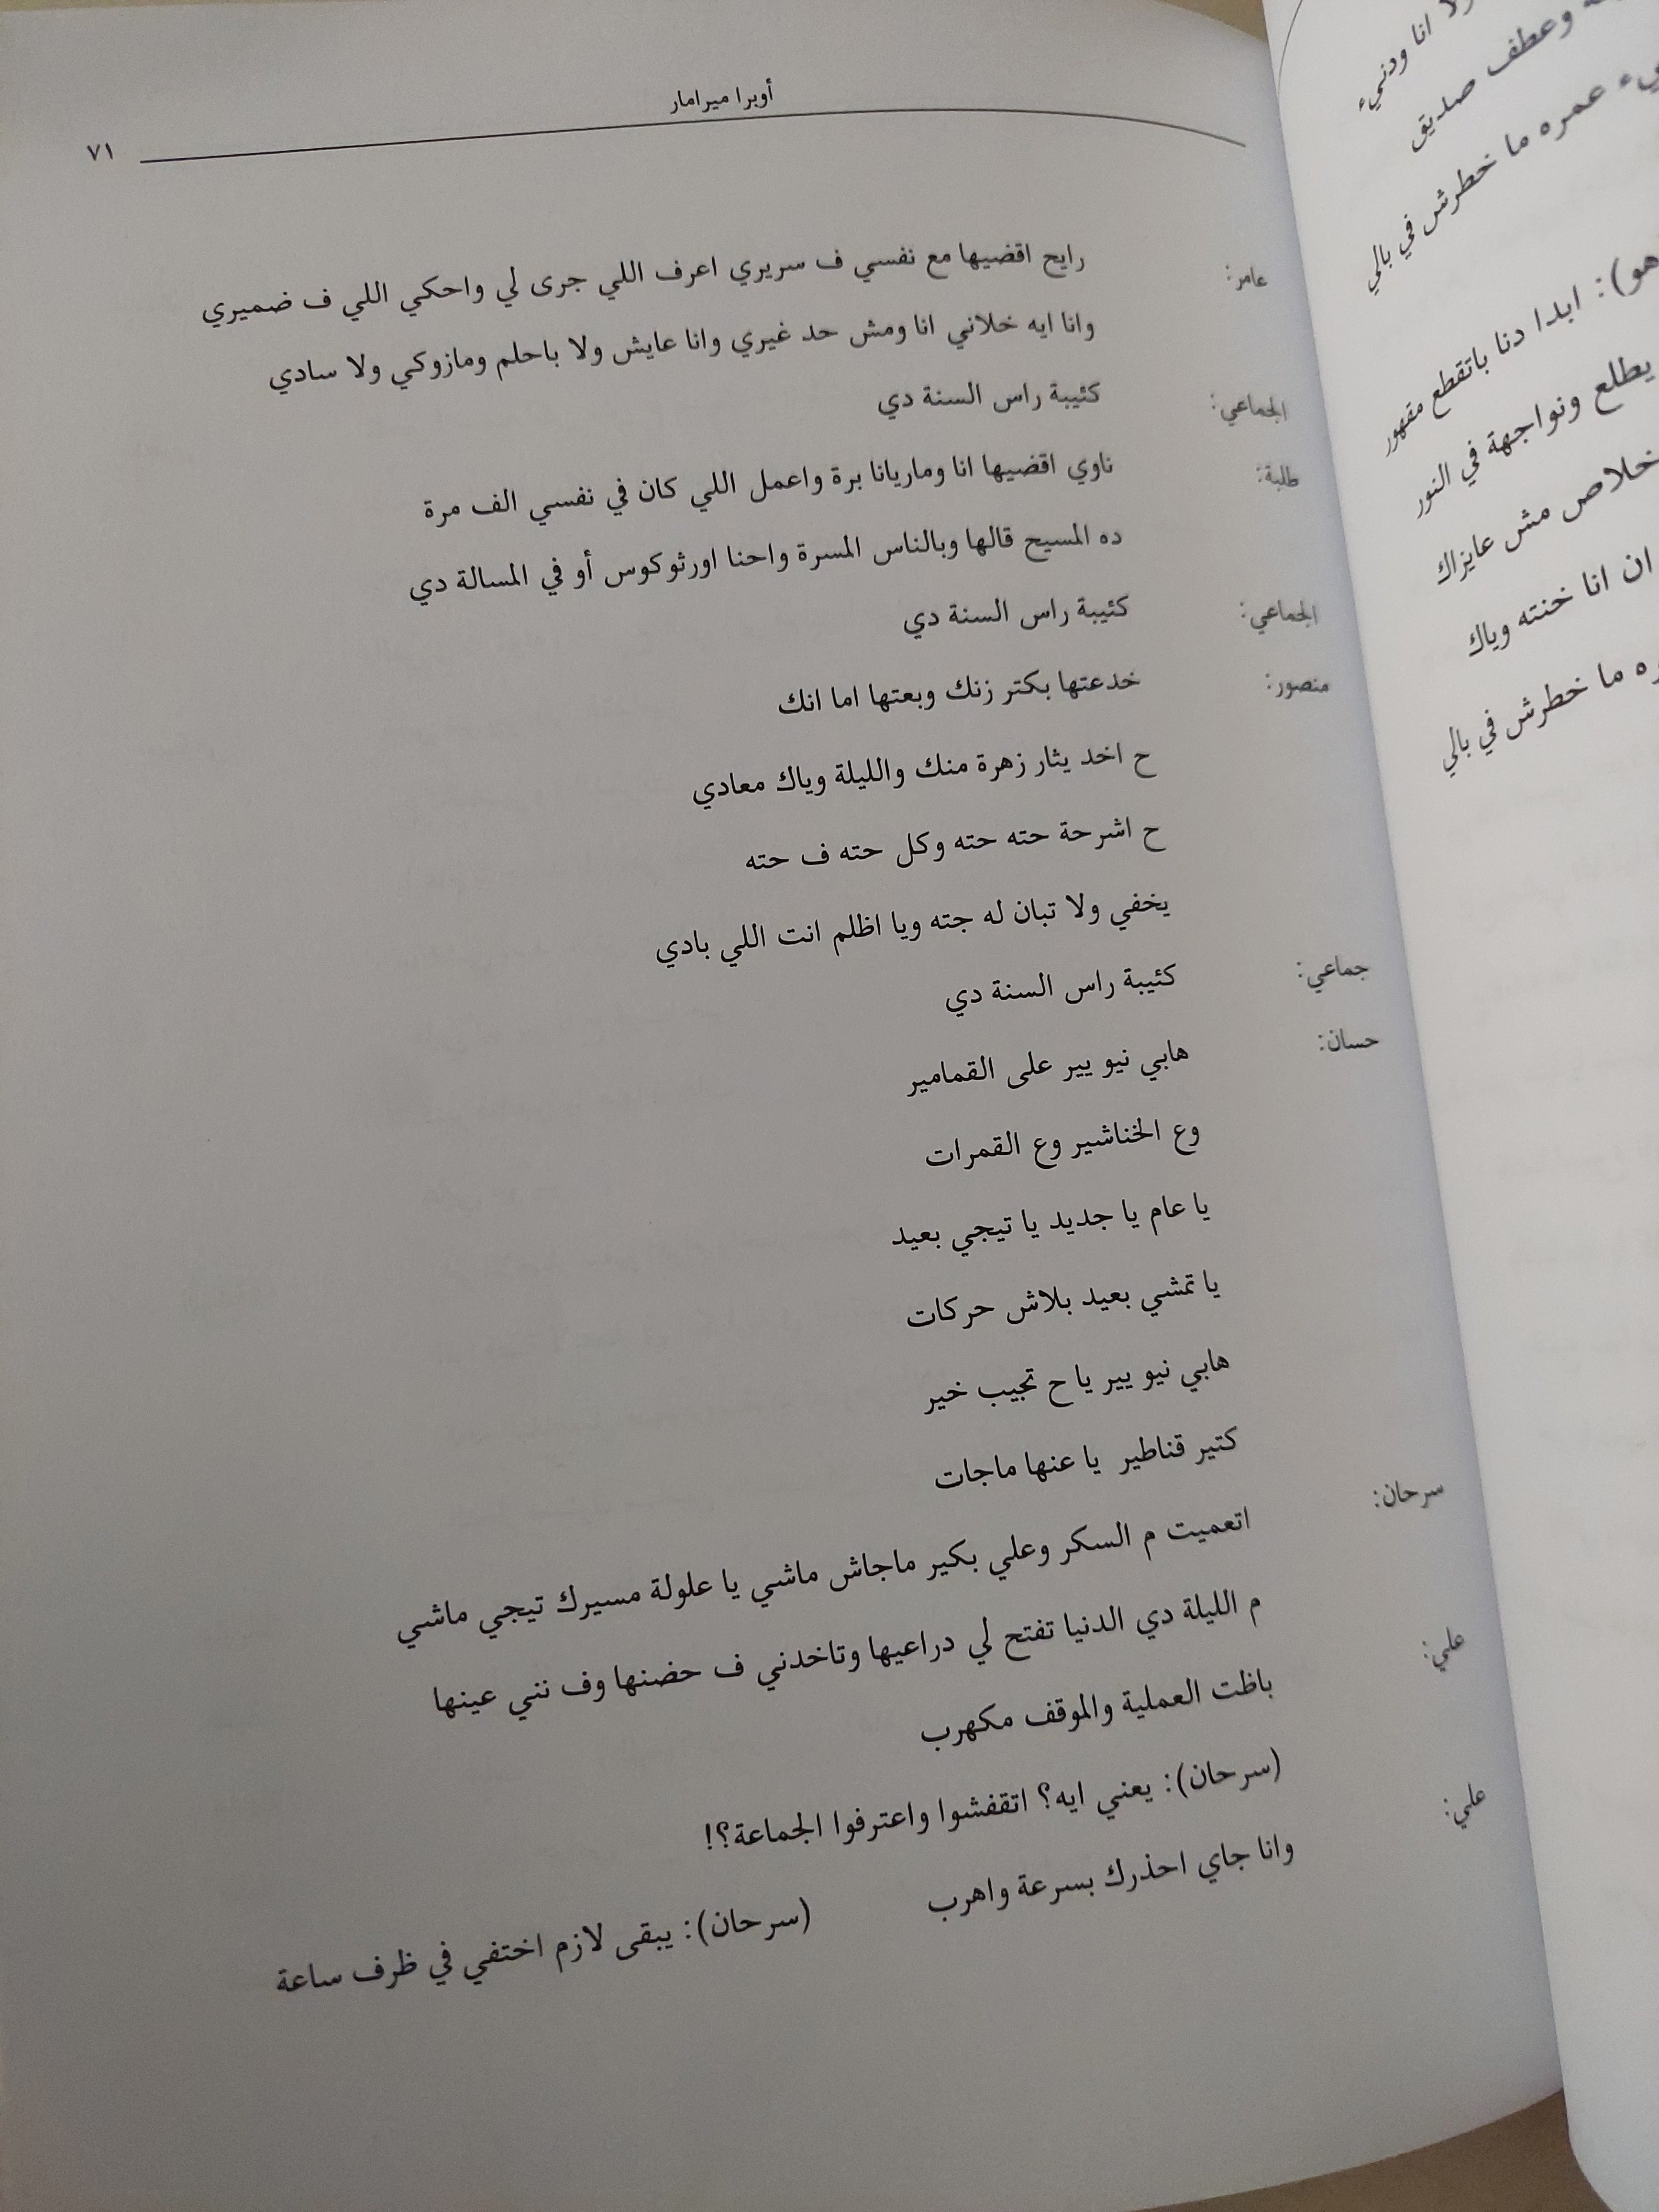 أوبرا ميرامار
٧١
عامر: رايح اقضيها مع نفسي ف سريري اعرف اللي جرى لي واحكي اللي ف ضميري
وانا ايه خلاني انا ومش حد غيري وانا عايش ولا باحلم ومازوكي ولا سادي
الجماعي: كئيبة راس السنة دي
طلبة: ناوي اقضيها انا وماريانا برة واعمل اللي كان في نفسي الف مرة
ده المسيح قالها وبالناس المسرة واحنا اورثوكوس أو في المسالة دي
الجماعي: كئيبة راس السنة دي
منصور: خدعتها بكتر زنك وبعتها اما انك
ح اخد يثار زهرة منك والليلة وياك معادي
ح اشرحة حته حته وكل حته ف حته
يخفي ولا تبان له جته ويا اظلم انت اللي بادي
جماعي: كئيبة راس السنة دي
حسان: هابي نيو يير على القمامير
وع الخناشير وع القمرات
يا عام يا جديد يا تيجي بعيد
يا تمشي بعيد بلاش حركات
هابي نيو يير يا ح تجيب خير
كتير قناطير يا عنها ماجات
سرحان: اتعميت م السكر وعلي بكير ماجاش ماشي يا علولة مسيرك تيجي ماشي
م الليلة دي الدنيا تفتح لي دراعيها وتاخدني ف حضنها وف نني عينها
علي: باظت العملية والموقف مكهرب
(سرحان): يعني ايه؟ اتقفشوا واعترفوا الجماعة؟!
علي: وانا جاي احذرك بسرعة واهرب
(سرحان): يبقى لازم اختفي في ظرف ساعة
انا ودنيء
وعطف صديق
عمره ما خطرش في بالي
ابدا دنا باتقطع مقهور
يطلع ونواجهة في النور
خلاص مش عايزاك
ان انا خنته وياك
ما خطرش في بالي